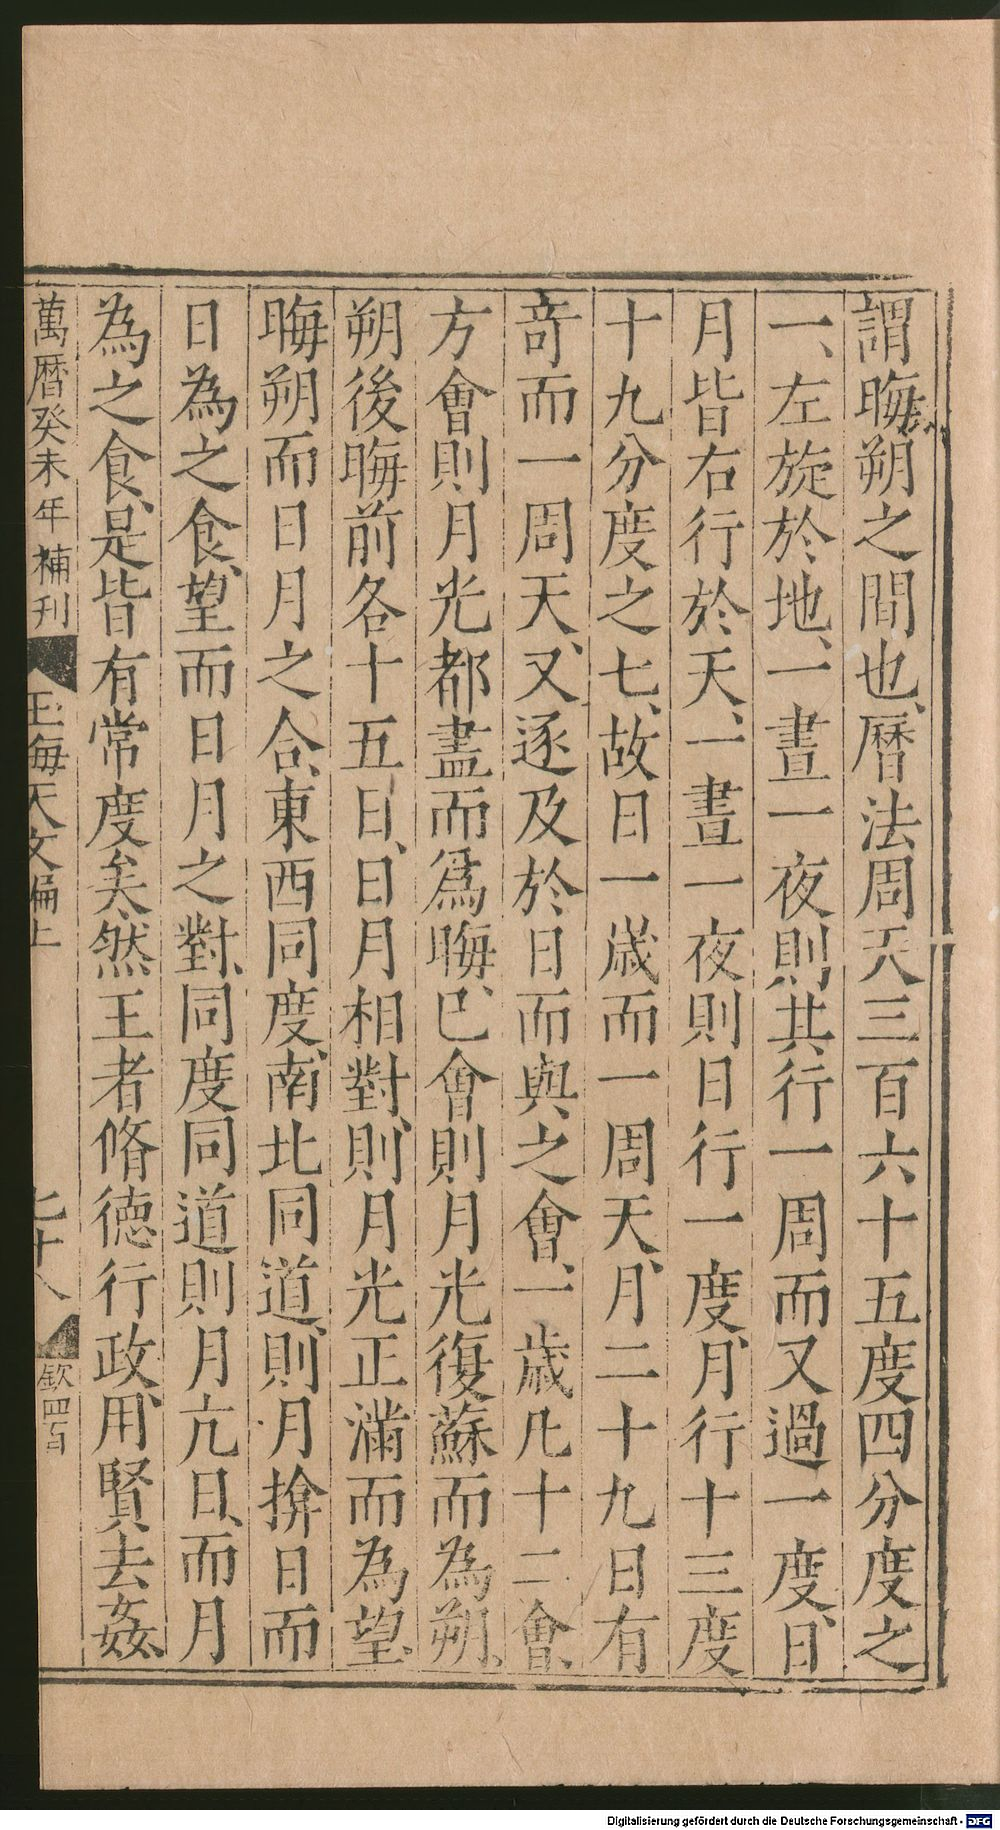 謂晦朔之間也、曆法周天三百六十五度四分度之
一、左旋於地、一晝一夜則其行一周而又過一度、日
月皆右行於天、一晝一夜則日行一度、月行十三度
十九分度之七、故日一歲而一周天、月二十九日有
竒而一周天、又逐及於日而與之會、一歲凡十二會、
方會則月光都盡而爲晦、已會則月光復蘇而為朔、
朔後晦前各十五日、日月相對、則月光正滿而為望、
晦朔而日月之合、東西同度、南北同道、則月揜日而
日為之食、望而日月之對、同度同道則月亢日、而月
為之食、是皆有常度矣、然王者脩德行政、用賢去姦、
萬曆癸未年補刊
玉海天文編上
七十八
欽四百
Digitalisierung gefördert durch die Deutsche Forschungsgemeinschaft - DFG